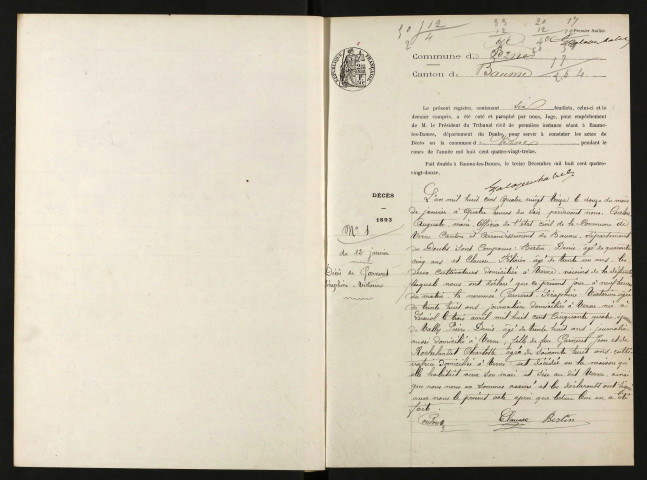 30 12
2 4
33 20 17
Premier feuillet
Commune de Verne
Canton de Baume
17
264
RÉPUBLIQUE FRANÇAISE
Le présent registre, contenant six feuillets, celui-ci et le
dernier compris, a été coté et paraphé par nous, Juge, pour empêchement
de M. le Président du Tribunal civil de première instance séant à Baume-
les-Dames, département du Doubs, pour servir à constater les actes de
Décès en la commune de Verne pendant le
cours de l'année mil huit cent quatre-vingt-treize.
Fait double à Baume-les-Dames, le treize Décembre mil huit cent quatre-
vingt-douze.
DÉCÈS
1893
N° 1
du 12 janvier
Décès de
L'an mil huit cent quatre vingt treize le douze du mois
de janvier à quatre heures du soir pardevant nous
Auguste, maire, officier de l'état civil de la commune de
Verne Canton et arrondissement de Baume, département
du Doubs sont comparus: Bertin Denis âgé de quarante
cinq ans et Clausse âgé de trente un ans, les
deux cultivateurs domiciliés à Verne, voisins de la défunte
lesquels nous ont déclaré que ce présent jour à neuf heures
du matin la nommée Séraphine âgée
de trente huit ans, journalière domiciliée à Verne née à
le trois avril mil huit cent cinquante quatre épouse
de Pierre Denis âgé de trente huit ans, journalier
aussi domicilié à Verne, fille de feu Jean et de
Charlotte âgée de soixante huit ans, culti-
vatrice domiciliée à Verne est décédée en la maison qu'
elle habitait avec son mari et sise au dit Verne, ainsi
que nous nous en sommes assuré et les déclarants ont signé
avec nous le présent acte après que lecture leur en a été
faite.
Clausse Bertin